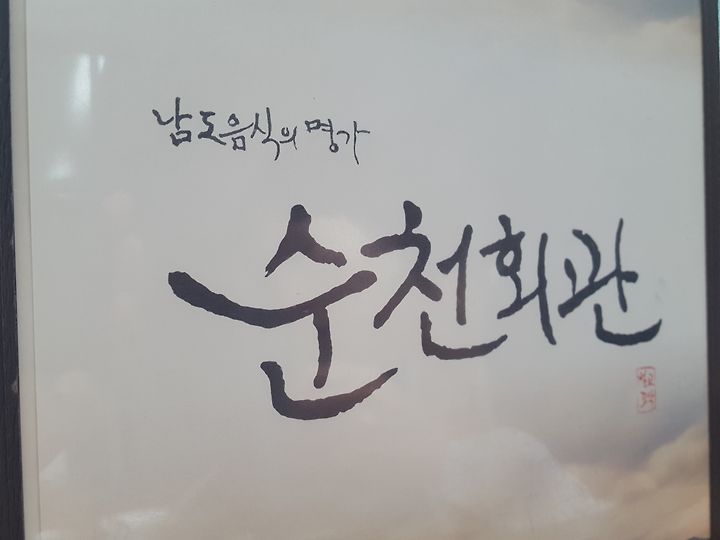 남도음식의 명가
순천회관